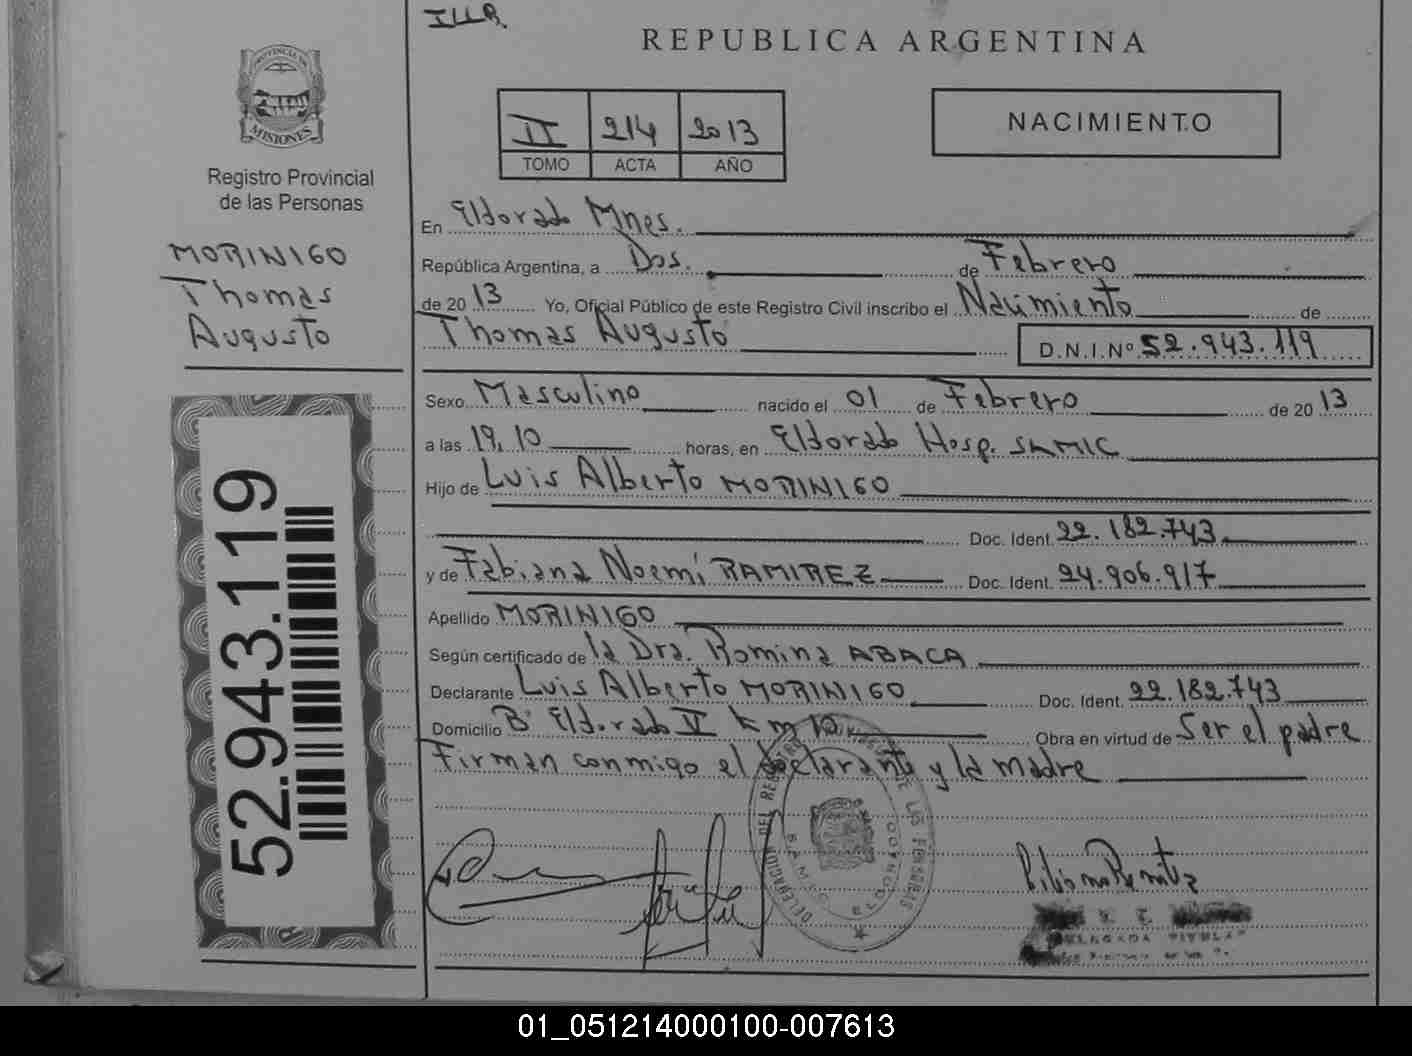 REPUBLICA ARGENTINA
PROVINCIA DE
MISIONES
Registro Provincial
de las Personas
MORINIGO
Thomas
Augusto
52.943.119
II 214 2013
TOMO ACTA AÑO
NACIMIENTO
En Eldorado Mnes.
República Argentina, a Dos. de Febrero
de 2013 Yo, Oficial Público de este Registro Civil inscribo el Nacimiento de
Thomas Augusto D.N.I.Nº 52.943.119
Sexo Masculino nacido el 01 de Febrero de 2013
a las 19,10 horas, en Eldorado Hosp. SAMIC
Hijo de Luis Alberto MORINIGO
Doc. Ident. 22.182.743
y de Fabiana Noemí RAMIREZ Doc. Ident. 24.906.917
Apellido MORINIGO
Según certificado de la Dra. Romina ABACA
Declarante Luis Alberto MORINIGO Doc. Ident. 22.182.743
Domicilio Bº Eldorado V km 10 Obra en virtud de Ser el padre
Firman conmigo el declarante y la madre
DELEGACION DEL REGISTRO DE LAS PERSONAS
ELDORADO
DELEGADA TITULAR
01_051214000100-007613